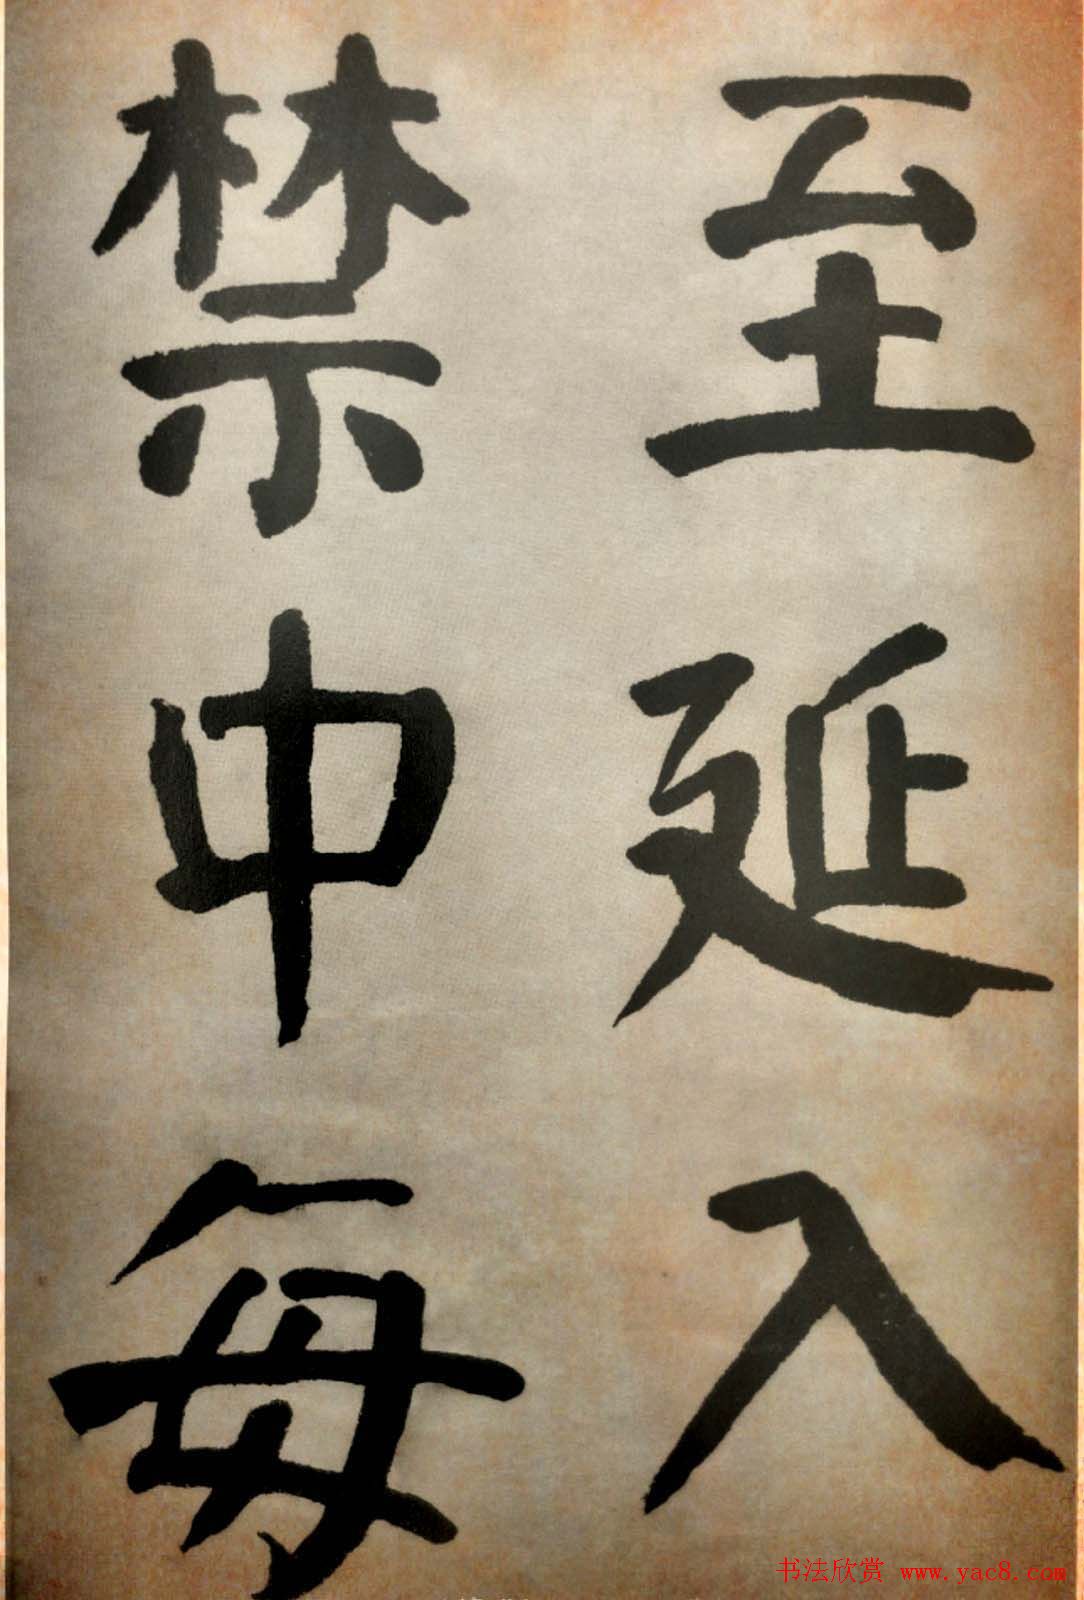 至延入
禁中每
书法欣赏 www.yac8.com